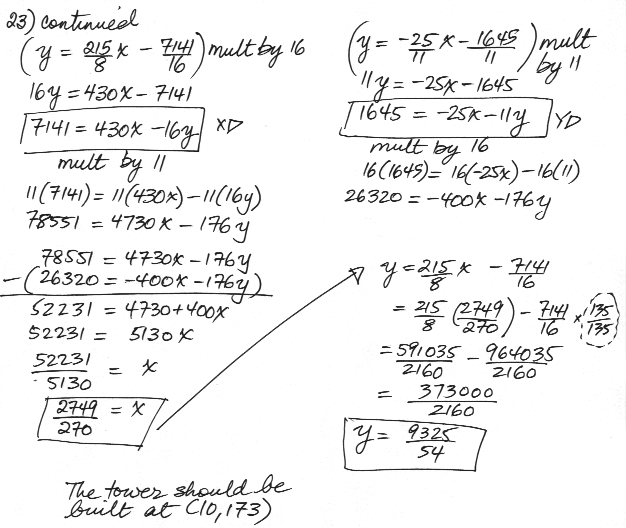 23) continued
(y = 215/8 x - 7141/16) mult by 16
16y = 430x - 7141
7141 = 430x - 16y XD
mult by 11
11(7141) = 11(430x) - 11(16y)
78551 = 4730x - 176y
78551 = 4730x - 176y
-(26320 = -400x - 176y)
52231 = 4730+400x
52231 = 5130x
52231/5130 = x
2749/270 = x
(y = -25/11 x - 1645/11) mult by 11
11y = -25x - 1645
1645 = -25x - 11y YD
mult by 16
16(1645) = 16(-25x) - 16(11)
26320 = -400x - 176y
y = 215/8 x - 7141/16
= 215/8 (2749/270) - 7141/16 x (135/135)
= 591035/2160 - 964035/2160
= 373000/2160
y = 9325/54
The tower should be
built at (10,173)